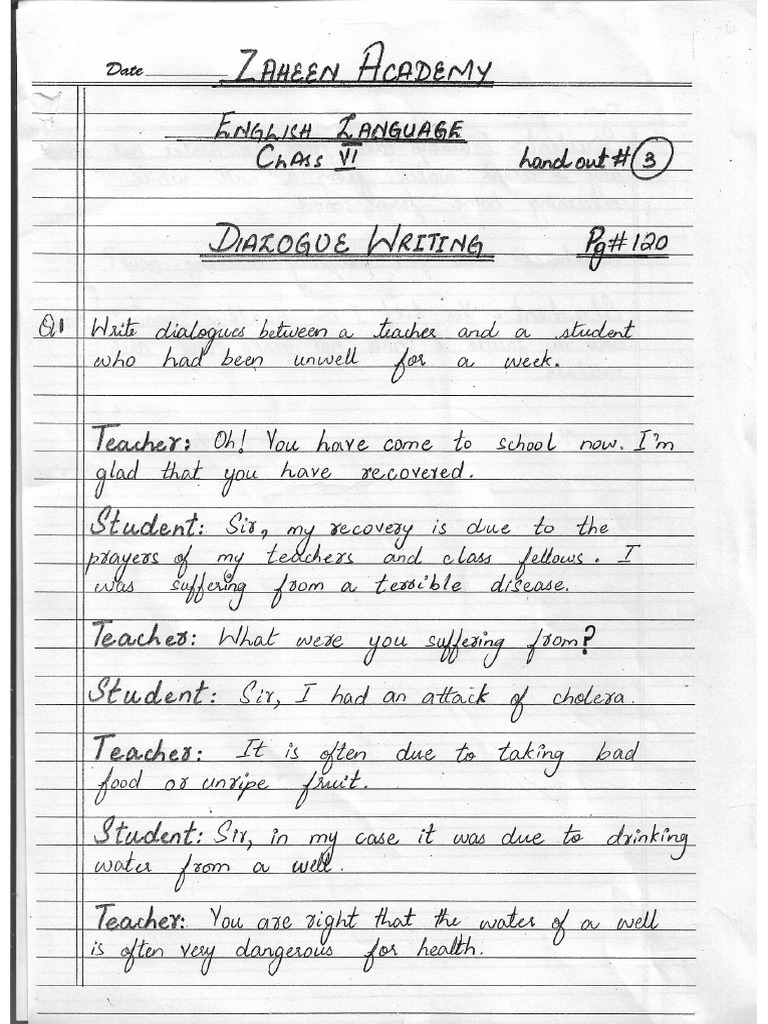 Date ZAHEEN ACADEMY
ENGLISH LANGUAGE
CLASS VI hand out # 3
DIALOGUE WRITING Pg# 120
Q1 Write dialogues between a teacher and a student
who had been unwell for a week.
Teacher: Oh! You have come to school now. I'm
glad that you have recovered.
Student: Sir, my recovery is due to the
prayers of my teachers and class fellows. I
was suffering from a terrible disease.
Teacher: What were you suffering from?
Student: Sir, I had an attack of cholera.
Teacher: It is often due to taking bad
food or unripe fruit.
Student: Sir, in my case it was due to drinking
water from a well.
Teacher: You are right that the water of a well
is often very dangerous for health.